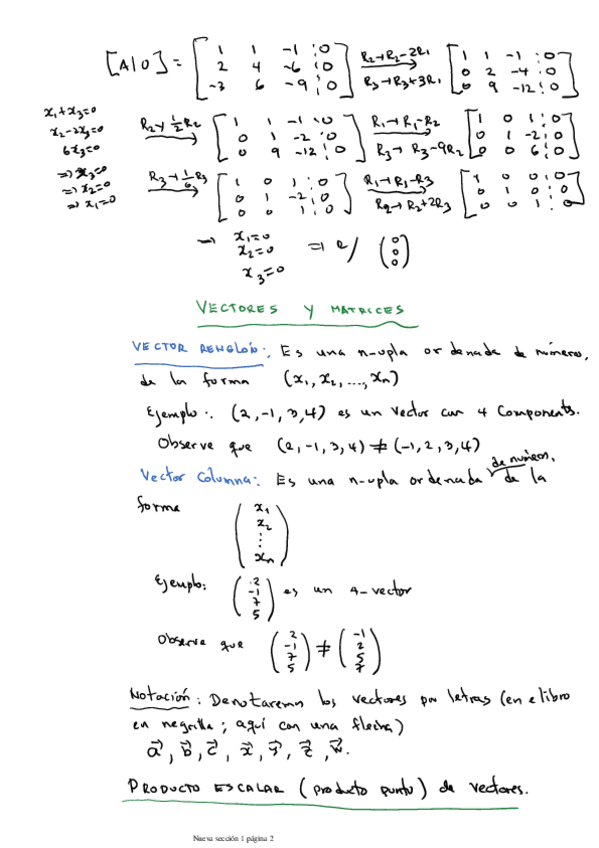 [A|0] = [ 1 1 -1 | 0 ; 2 4 -6 | 0 ; -3 6 -9 | 0 ] R2→R2-2R1 R3→R3+3R1 [ 1 1 -1 | 0 ; 0 2 -4 | 0 ; 0 9 -12 | 0 ]
x1+x3=0
x2-2x3=0
6x3=0
⇒ x3=0
⇒ x2=0
⇒ x1=0
R2→½R2 [ 1 1 -1 | 0 ; 0 1 -2 | 0 ; 0 9 -12 | 0 ] R1→R1-R2 R3→R3-9R2 [ 1 0 1 | 0 ; 0 1 -2 | 0 ; 0 0 6 | 0 ]
R3→⅙R3 [ 1 0 1 | 0 ; 0 1 -2 | 0 ; 0 0 1 | 0 ] R1→R1-R3 R2→R2+2R3 [ 1 0 0 | 0 ; 0 1 0 | 0 ; 0 0 1 | 0 ]
→ x1=0
x2=0
x3=0
⇒ (0 0 0)
VECTORES Y MATRICES
VECTOR RENGLÓN: Es una n-upla ordenada de números,
de la forma (x1, x2, ..., xn)
Ejemplo: (2,-1,3,4) es un vector con 4 components.
Observe que (2,-1,3,4) ≠ (-1,2,3,4)
Vector Columna: Es una n-upla ordenada de números, de la
forma
(x1 x2 ⋮ xn)
Ejemplo: (2 -1 7 5) es un 4-vector
Observe que (2 -1 7 5) ≠ (-1 2 5 7)
Notación: Denotaremos los vectores por letras (en el libro
en negrilla; aquí con una flecha)
a⃗, b⃗, c⃗, x⃗, y⃗, z⃗, w⃗.
PRODUCTO ESCALAR (producto punto) de vectores.
Nueva sección 1 página 2